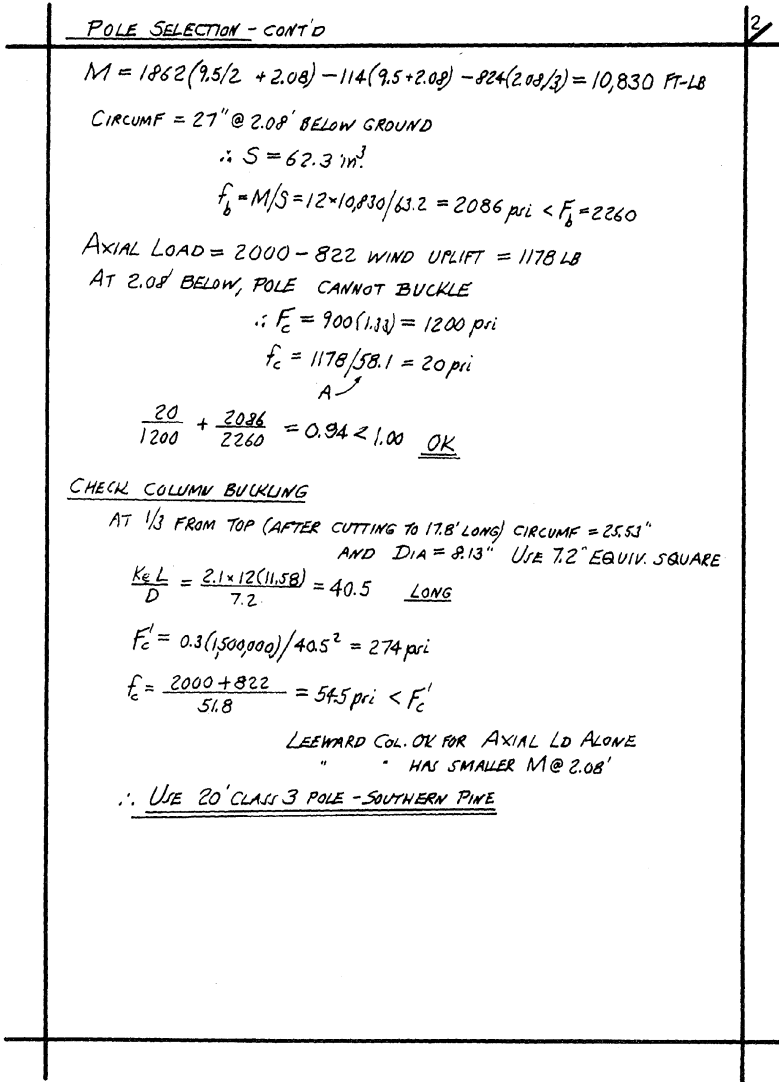 POLE SELECTION - CONT'D
2/
M = 1862(9.5/2 + 2.08) - 114(9.5+2.08) - 824(2.08/3) = 10,830 FT-LB
CIRCUMF = 27" @ 2.08' BELOW GROUND
∴ S = 62.3 in³.
f_b = M/S = 12×10,830/63.2 = 2086 psi < F_b = 2260
AXIAL LOAD = 2000 - 822 WIND UPLIFT = 1178 LB
AT 2.08' BELOW, POLE CANNOT BUCKLE
∴ F_c = 900(1.33) = 1200 psi
f_c = 1178/58.1 = 20 psi
A
20/1200 + 2086/2260 = 0.94 < 1.00 OK
CHECK COLUMN BUCKLING
AT 1/3 FROM TOP (AFTER CUTTING TO 17.8' LONG) CIRCUMF = 25.53"
AND DIA = 8.13" USE 7.2" EQUIV. SQUARE
KeL/D = 2.1×12(11.58)/7.2 = 40.5 LONG
F_c' = 0.3(1,500,000)/40.5² = 274 psi
f_c = 2000+822/51.8 = 54.5 psi < F_c'
LEEWARD COL. OK FOR AXIAL LD ALONE
" " HAS SMALLER M @ 2.08'
∴ USE 20' CLASS 3 POLE - SOUTHERN PINE